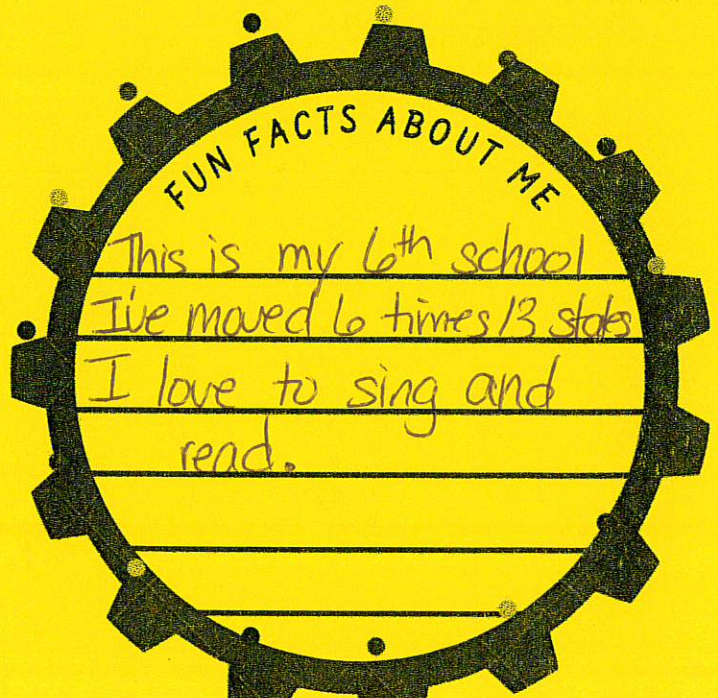 FUN FACTS ABOUT ME
This is my 6th school
I've moved 6 times/3 states
I love to sing and
read.